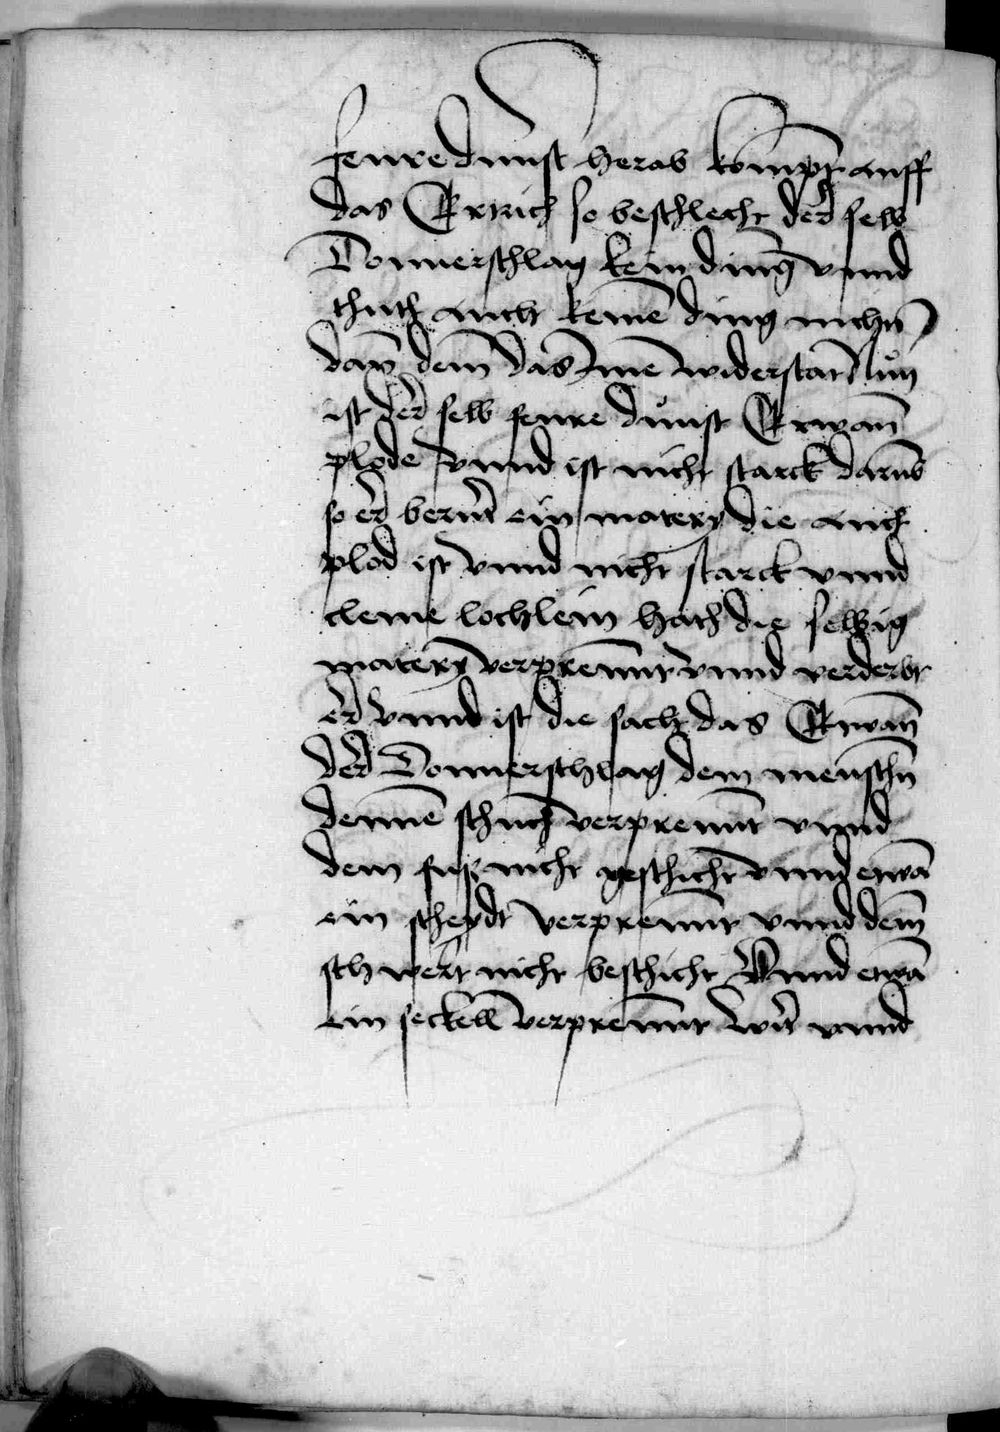 feure dunst herab kompt auff
das Ertrich so beschlecht der selb
Donnerschlag kein ding vnnd
thuth auch keine ding nichtz
dan dem das ime widerstat Nun
ist der selb feure dunst Etwan
plode vnnd ist nicht starck darub
so er berurt ein matery die auch
plod ist vnnd nicht starck vnnd
cleine lochlein hath die selbig
matery verprennt vnnd verderbt
er Vnnd ist die sach das Etwan
der Donnerschlag dem menschn
denne schuch verprennt vnnd
dem fuß nicht geschicht vnnd etwa
ein scheydt verprennt vnnd dem
schwert nicht beschicht Vnnd etwa
ein seckell verprennt wirt vnnd